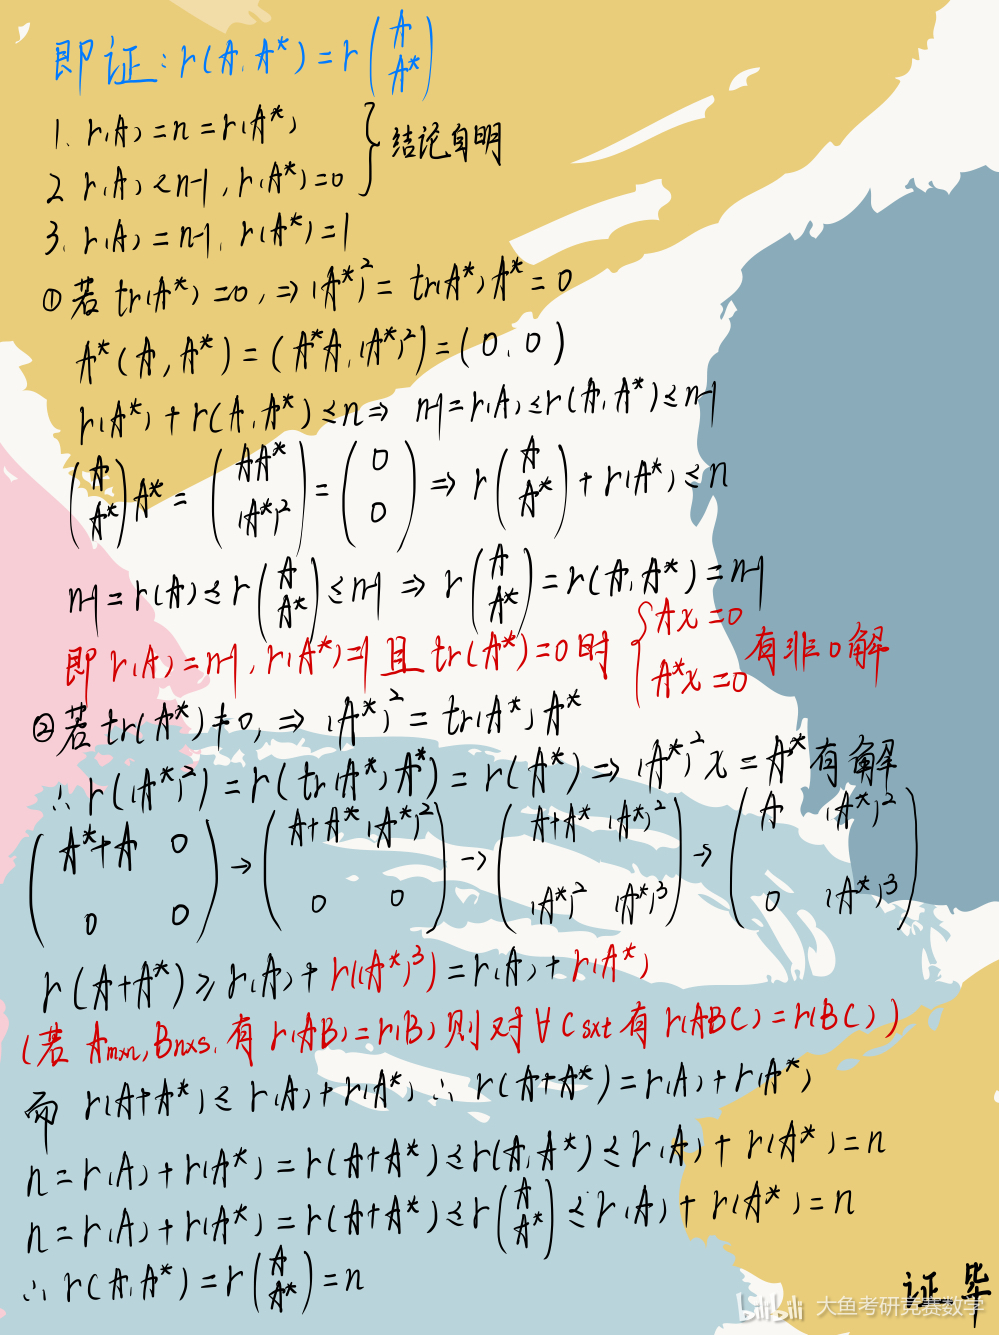 即证:r(A,A*)=r(A
A*)
1. r(A)=n=r(A*)
2. r(A)<n-1,r(A*)=0 } 结论自明
3. r(A)=n-1, r(A*)=1
①若 tr(A*)=0,⇒(A*)²=tr(A*)A*=0
A*(A,A*)=(A*A,(A*)²)=(0,0)
r(A*)+r(A,A*)≤n⇒ n-1=r(A)≤r(A,A*)≤n-1
(A
A*)A*=(AA*
(A*)²)=(0
0)⇒r(A
A*)+r(A*)≤n
n-1=r(A)≤r(A
A*)≤n-1⇒r(A
A*)=r(A,A*)=n-1
即 r(A)=n-1,r(A*)=1且tr(A*)=0时 {Ax=0
A*x=0 有非0解
②若 tr(A*)≠0,⇒(A*)²=tr(A*)A*
∴r((A*)²)=r(tr(A*)A*)=r(A*)⇒(A*)²x=A*有解
(A*+A 0
0 0)→(A+A* (A*)²
0 0)→(A+A* (A*)²
(A*)² (A*)³)→(A (A*)²
0 (A*)³)
r(A+A*)≥r(A)+r((A*)³)=r(A)+r(A*)
(若 Am×n,Bn×s,有 r(AB)=r(B)则对∀Cs×t有 r(ABC)=r(BC))
而 r(A+A*)≤r(A)+r(A*)∴r(A+A*)=r(A)+r(A*)
n=r(A)+r(A*)=r(A+A*)≤r(A,A*)≤r(A)+r(A*)=n
n=r(A)+r(A*)=r(A+A*)≤r(A
A*)≤r(A)+r(A*)=n
∴r(A,A*)=r(A
A*)=n
证毕
bilibili 大鱼考研竞赛数学